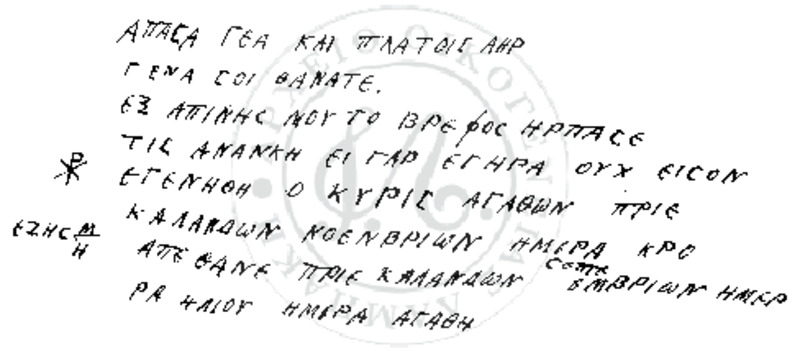 ΑΠΑϹΑ ΓΕΑ ΚΑΙ ΠΛΑΤΟΙϹ ΑΗΡ
ΓΕΝΑ ϹΟΙ ΘΑΝΑΤΕ.
ΕΞ ΑΠΙΝΗϹ ΜΟΥ ΤΟ ΒΡΕΦΟϹ ΗΡΠΑϹΕ
ΤΙϹ ΑΝΑΝΚΗ ΕΙ ΓΑΡ ΕΓΗΡΑ ΟΥΧ ΕΙϹΟΝ
☧ ΕΓΕΝΗΘΗ Ο ΚΥΡΙϹ ΑΓΑΘΩΝ ΠΡΙΕ
ΚΑΛΑΝΔΩΝ ΝΟΕΝΒΡΙΩΝ ΗΜΕΡΑ ΚΡΟ
ΕΖΗϹ Μ/Η ΑΠΕΘΑΝΕ ΠΡΙΕ ΚΑΛΑΝΔΩΝ ϹΕΠΤΕΜΒΡΙΩΝ ΗΜΕΡ
ΡΑ ΗΛΙΟΥ ΗΜΕΡΑ ΑΓΑΘΗ
ΑΡΧΕΙΟ ΟΙΚΟΓΕΝΕΙΑΣ ΚΑΜΠΑΚΗ